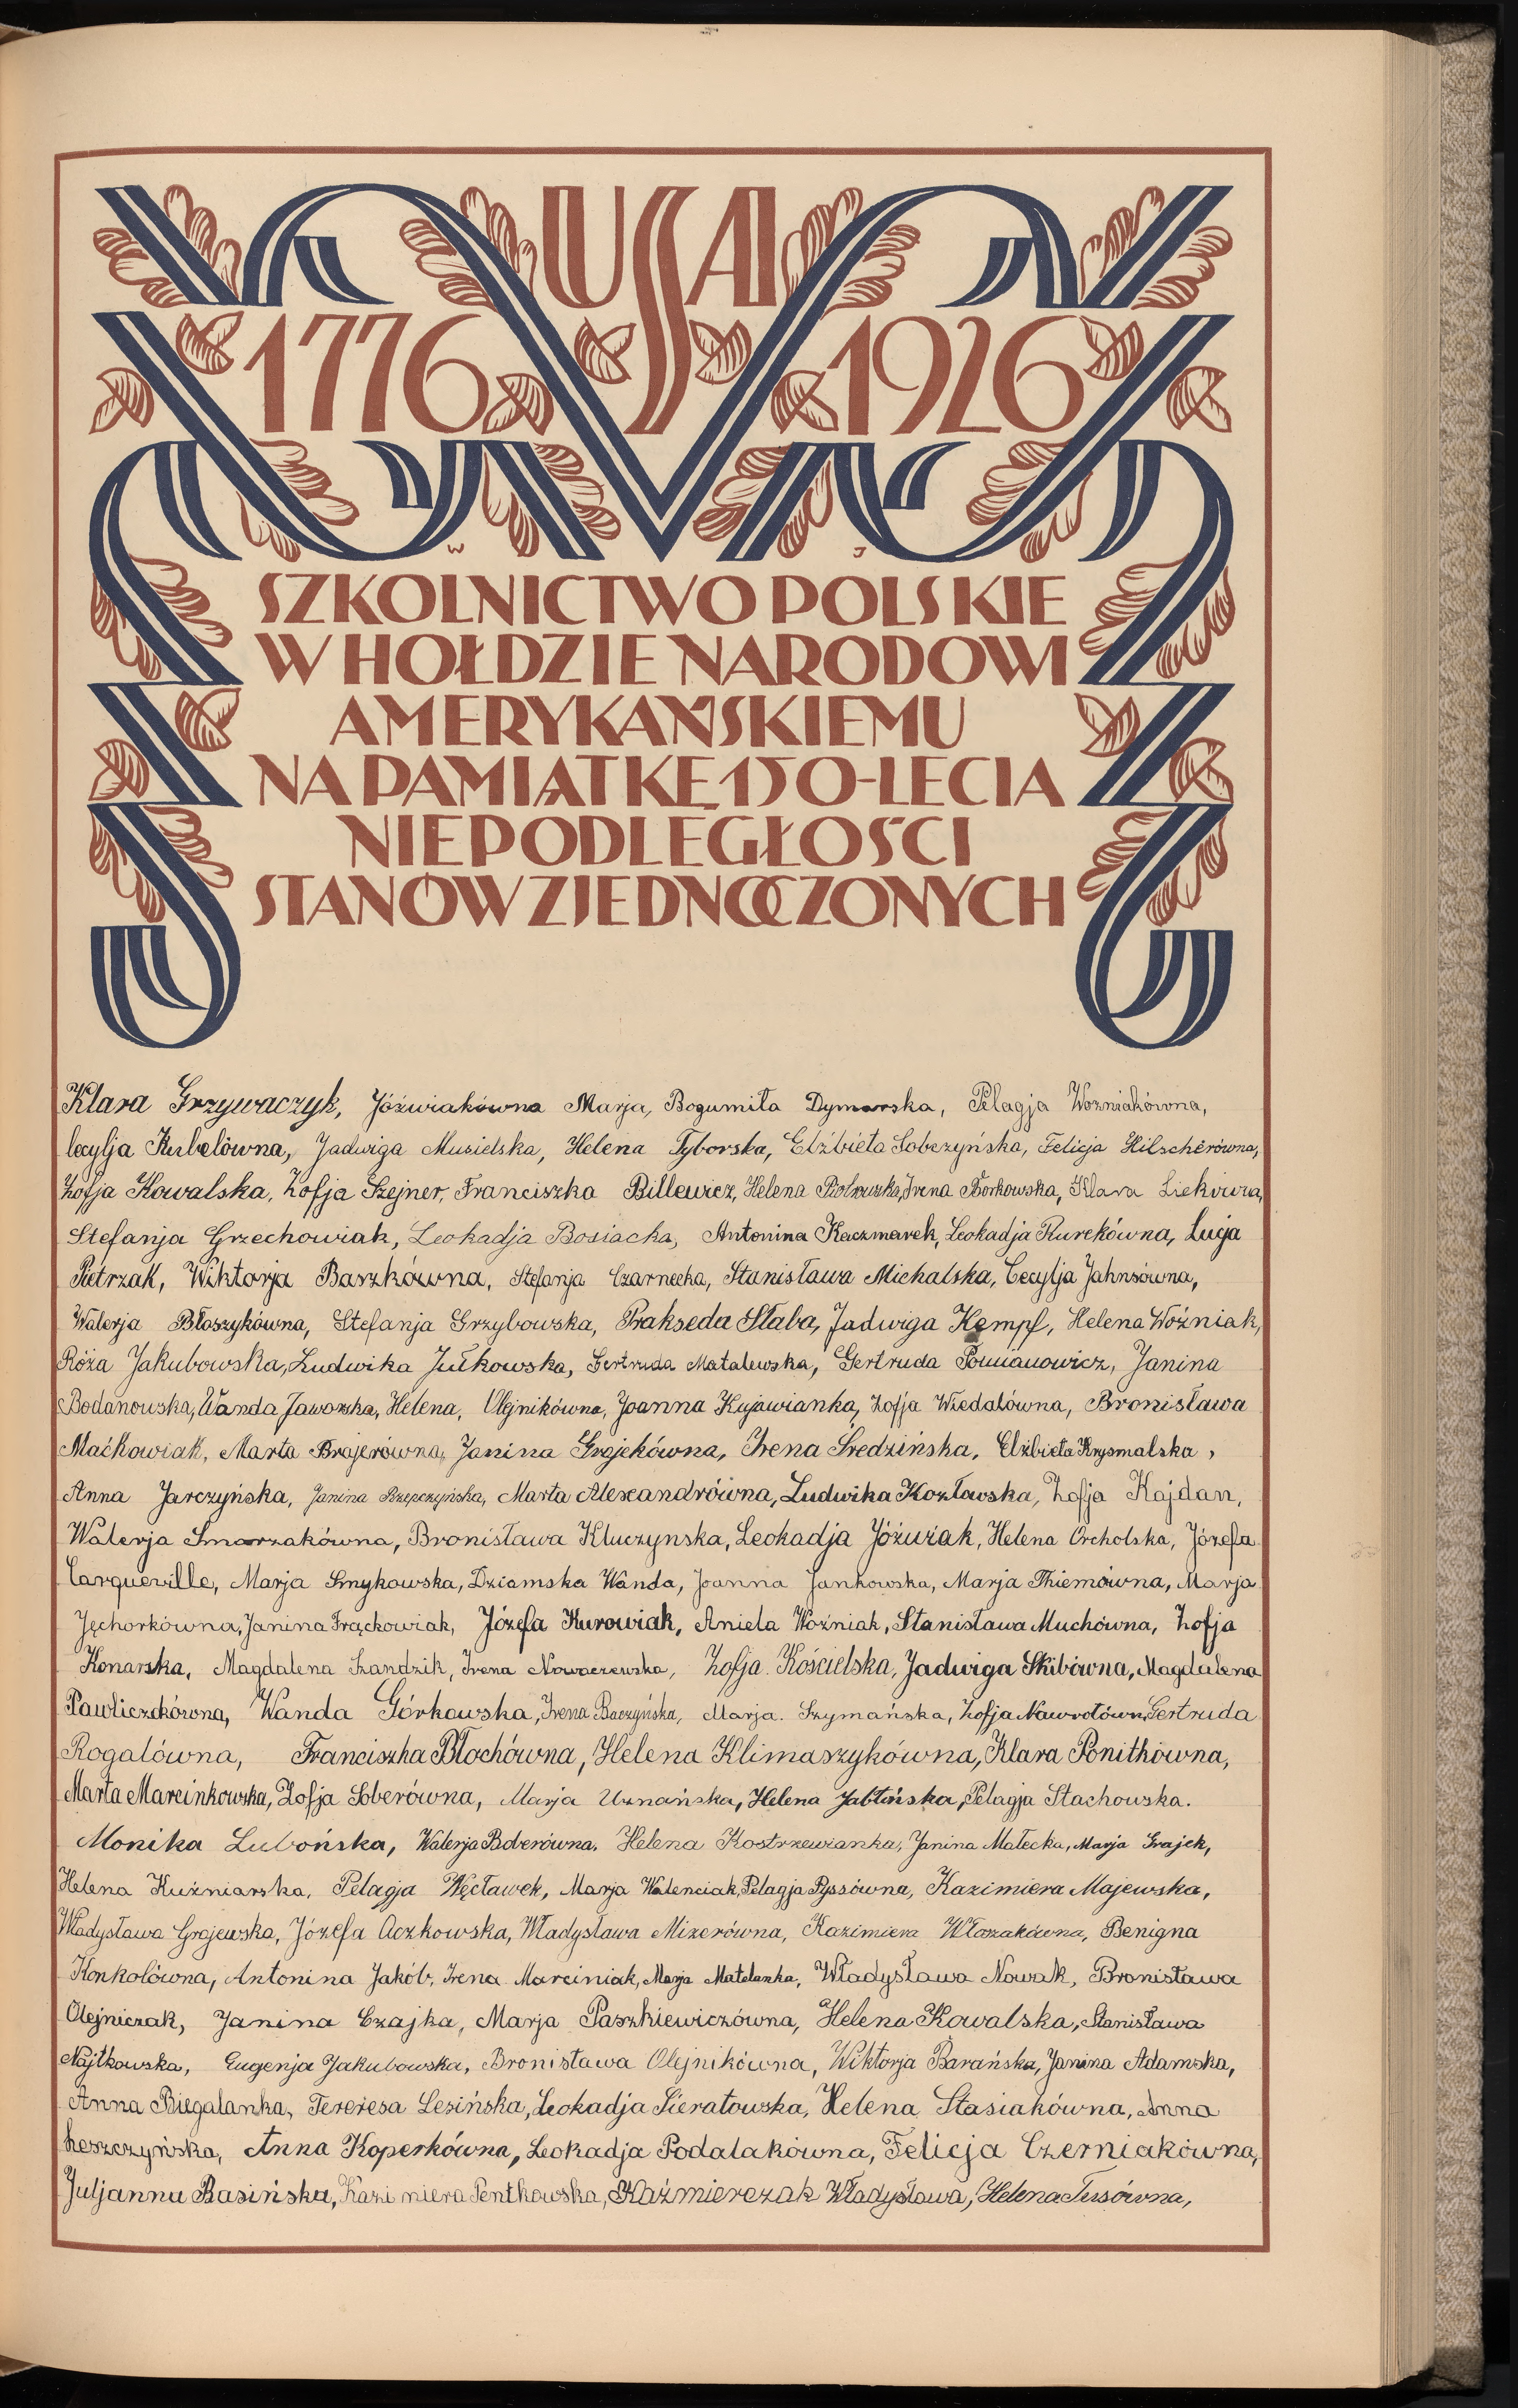 USA
1776 1926
W J
SZKOLNICTWO POLSKIE
W HOŁDZIE NARODOWI
AMERYKAŃSKIEMU
NA PAMIĄTKĘ 150-LECIA
NIEPODLEGŁOŚCI
STANÓW ZJEDNOCZONYCH
Klara Grzywaczyk, Jóźwiakówna Marja, Bogumiła Dymarska, Pelagja Wozniakówna,
Cecylja Kubelówna, Jadwiga Musielska, Helena Tyborska, Elżbieta Sobczyńska, Felicja Hilscherówna,
Zofja Kowalska, Zofja Szejner, Franciszka Billewicz, Helena Irena Borkowska, Klara
Stefanja Grzechowiak, Leokadja Bosiacka, Antonina Kaczmarek, Leokadja Kurekówna, Łucja
Pietrzak, Wiktorja Barzkówna, Stefanja Czarnecka, Stanisława Michalska, Cecylja Jahnsówna,
Walerja Błoszykówna, Stefanja Grzybowska, Prakseda Słaba, Jadwiga Kempf, Helena Woźniak,
Róża Jakubowska, Ludwika Jułkowska, Gertruda Matalewska, Gertruda Tomianowicz, Janina
Bodanowska, Wanda Jaworska, Helena, Olejnikówna, Joanna Kujawianka, Zofja Wiedalówna, Bronisława
Maćkowiak, Marta Brajerówna, Janina Grojekówna, Irena Średzińska, Elżbieta Krysmalska,
Anna Jarczyńska, Janina Rzepczyńska, Marta Alexandrówna, Ludwika Kozłowska, Zofja Kajdan,
Walerja Smorzakówna, Bronisława Kluczynska, Leokadja Jóźwiak, Helena Orcholska, Józefa
Carqueville, Marja Smykowska, Dziamska Wanda, Joanna Jankowska, Marja Thiemówna, Marja
Jęchorkówna, Janina Frąckowiak, Józefa Kurowiak, Aniela Woźniak, Stanisława Muchówna, Zofja
Konarska, Magdalena Szandzik, Irena Nowaczewska, Zofja Kościelska, Jadwiga Skibówna, Magdalena
Pawliczakówna, Wanda Górkowska, Irena Baczyńska, Marja Szymańska, Zofja Nawrotówn, Gertruda
Rogalówna, Franciszka Błochówna, Helena Klimaszykówna, Klara Ponitkówna,
Marta Marcinkowska, Zofja Soberówna, Marja Uznańska, Helena Jabłńska, Pelagja Stachowska.
Monika Lubońska, Walerja Boberówna, Helena Kostrzewianka, Janina Małecka, Marja Grajek,
Helena Kuźniarska, Pelagja Węcławek, Marja Walenciak, Pelagja Pyssówna, Kazimiera Majewska,
Władysława Grajewska, Józefa Aczkowska, Władysława Mizerówna, Kazimiera Włozakówna, Benigna
Konkolówna, Antonina Jakób, Irena Marciniak, Marja Matelanka, Władysława Nowak, Bronisława
Olejniczak, Janina Czajka, Marja Paszkiewiczówna, Helena Kowalska, Stanisława
Najtkowska, Eugenja Jakubowska, Bronisława Olejnikówna, Wiktorja Barańska, Janina Adamska,
Anna Biegalanka, Tereresa Lesińska, Leokadja Sieratowska, Helena Stasiakówna, Anna
Leszczyńska, Anna Koperkówna, Leokadja Podalakówna, Felicja Czerniakówna,
Juljanna Basińska, Kazimiera Pentkowska, Kaźmierczak Władysława, Helena Tusówna,